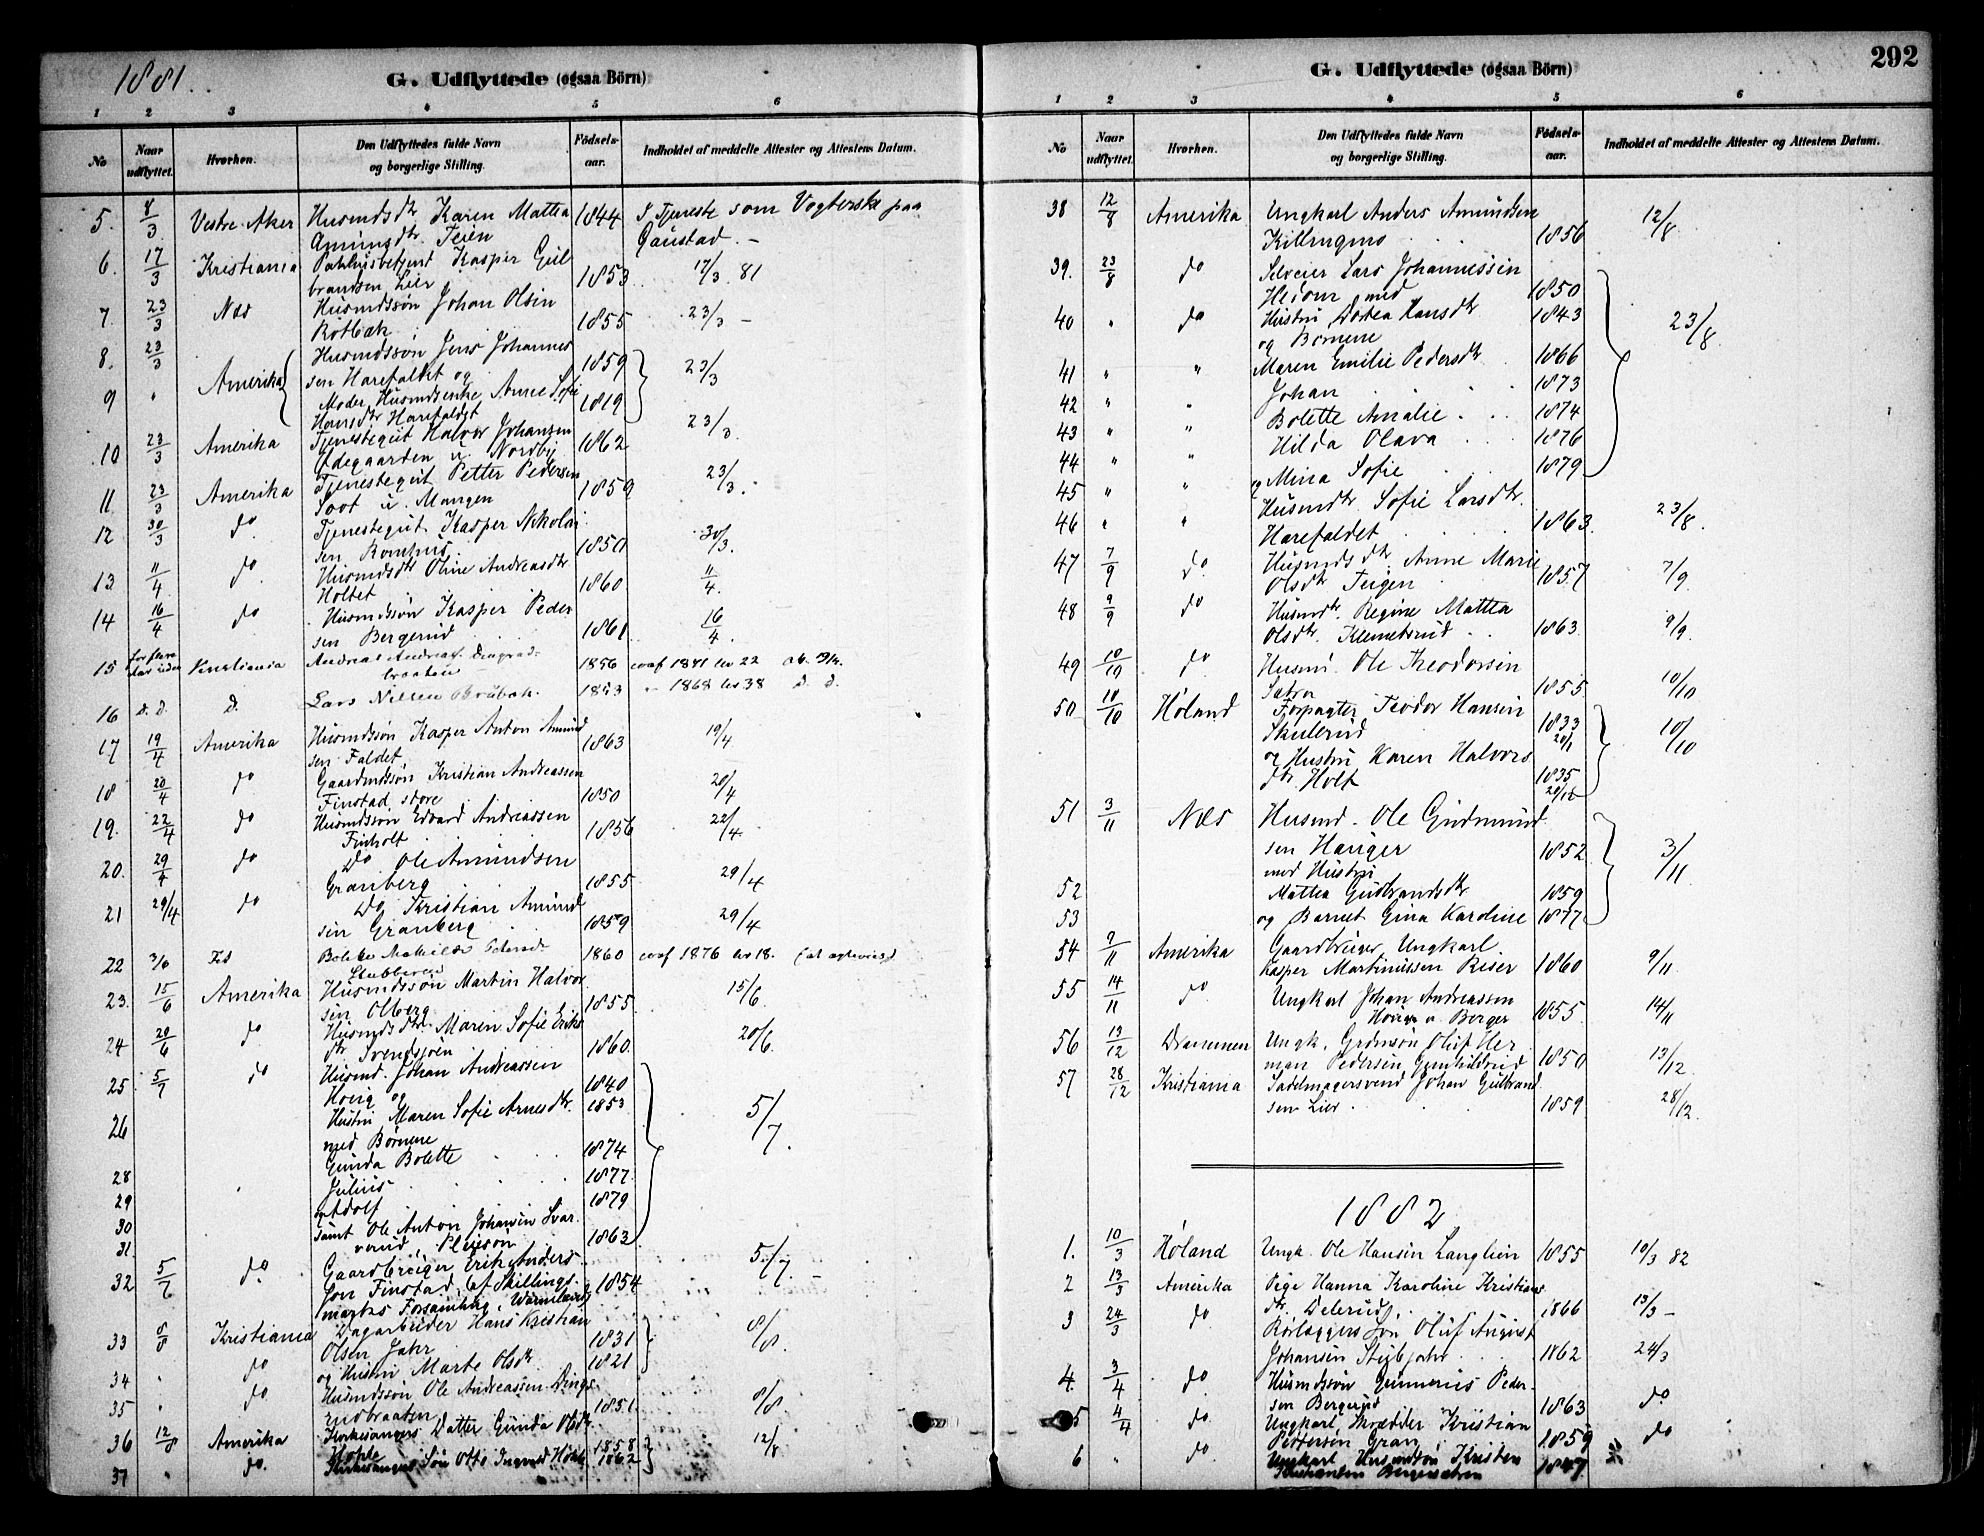 1881.
G. Udflyttede (ogsaa Börn)
1 2 3 4 5 6
No Naar udflyttet. Hvorhen. Den Udflyttedes fulde Navn og borgerlige Stilling. Födsels-aar. Indholdet af meddelte Attester og Attestens Datum.
5. 8/3 Vestre Aker Husmdsdtr Karen Mattea 1844 I Tjeneste som Vogterske paa
Amundsdtr. Teien Gaustad. –
6. 17/3 Kristiania Pakhusbetjent Kasper Gul
brandsen Lier 1853 17/3. 81
7. 23/3 Næs Husmdssøn Johan Olsen
Rotbæk 1855 23/3 –
8. 23/3 Amerika Husmdssøn Jens Johannes
sen Harefaldet og 1859 23/3
9 " Moder, Husmdsenke Anne Sofie
Hansdtr Harefaldet 1819
10 23/3 Amerika Tjenestegut Halvor Johansen 23/3.
Ødegaarden u. Nordby 1862
11. 23/3 Amerika Tjenestegut Petter Pedersen 23/3.
Soot u. Mangen 1859
12 30/3 do. Tjenestegut Kasper Nikolai
sen Romhus 1850 30/3.
13 11/4 do. Husmdsdtr Oline Andreasdtr
Holtet 1860 11/4.
14 16/4 do Husmdssøn Kasper Peder
sen Bergerud 1861 16/4.
15 Kristiania Andreas Andreas. Dingsrud-
braaten 1856 conf 1871
16 d. d. d. Lars Nilsen Brubak. 1853 – 1868 d. d.
17 19/4 Amerika Husmdssøn Kasper Anton Amund
sen Faldet 1863 19/4
18 20/4 do Gaardmdssøn Kristian Andreassen
Finstad store 1850 20/4
19. 22/4 do Husmdssøn Edvard Andreassen
Finholt 1856 22/4
20. 29/4 do Do Ole Amundsen
Granberg 1855 29/4
21 29/4 do Do Kristian Amund
sen Granberg 1859 29/4
22 3/6 Fet Bolette Mathilde 1860 conf 1876
Stubberud
23. 15/6 Amerika Husmdssøn Martin Halvor
sen Olberg 1855 15/6
24 20/6 do Husmdsdtr Maren Sofie Eriks
dtr Svendsjøen 1860. 20/6.
25 5/7 do Husmd. Johan Andreassen
Høvig og 1840
26 Hustru Maren Sofie Arnesdtr. 1853 5/7.
med Børnene
28 Gunda Bolette 1874
29 Julius 1877
30 og Adolf 1879
31 samt Ole Anton Johansen Svar
verud, Pleiesøn 1863
32 5/7 do. Gaardbruger Erik Anders
søn Finstad, af Skillings- 1854 5/7. –
marks Forsamling, Wärmland
33 8/8 Kristiania Dagarbeider Hans Kristian
Olsen Jahr 1831 8/8.
34 " do og Hustru Marte Olsdtr 1821
35 " do Husmdssøn Ole Andreassen Dings
rudbraaten 1851. 8/8.
36 12/8 Amerika Kirkesangers Datter Gunda Olsdtr
Hohle 1858 12/8
37 " do. Kirkesangers Søn Otto Ingvald Hohle 1862
292
G. Udflyttede (ogsaa Börn)
1 2 3 4 5 6
No Naar udflyttet. Hvorhen. Den Udflyttedes fulde Navn og borgerlige Stilling. Födsels-aar. Indholdet af meddelte Attester og Attestens Datum.
38 12/8 Amerika Ungkarl Anders Amundsen 12/8
Killingmo 1856
39. 23/8 do Selveier Lars Johannessen
Heiom med 1850
40 " do Hustru Dortea Hansdtr 1843 23/8.
og Børnene
41 " " Maren Emilie Pedersdtr 1866
42 " " Johan 1873
43 " " Bolette Amalie 1874
44 " " Hilda Olava 1876
45 " " og Mina Sofie 1879
46 " " Husmdtr Sofie Larsdtr.
Harefaldet 1863. 23/8.
47 7/9 do. Husmdsdtr Anne Marie
Olsdtr Teigen 1857 7/9
48 9/9 do Husmdtr. Regine Mattea
Olsdtr. Klemetsrud 1863. 9/9.
49 10/10 do Husmd. Ole Theodorsen
Sætra 1855 10/10
50. 10/10 Høland Forpagter Teodor Hansen
Skulerud 1833 20/1 10/10
og Hustru Karen Halvors
dtr. Holt 1835 20/12
51 3/11 Næs Husmd. Ole Gudmund
sen Hauger 1852 3/11
med Hustru
52 Mattea Gudbrandsdtr 1859
53 og Barnet Gina Karoline 1877
54 9/11 Amerika Gaardbruger, Ungkarl
Kasper Martinussen Riser 1860 9/11
55 14/11 do Ungkarl Johan Andreassen
Høvig u. Berger 1855 14/11
56 13/12 Drammen Ungk. Grdmssøn Oluf Her
man Pedersen Gunhildrud 1850 13/12
57 28/12 Kristiania Sadelmagersvend Johan Gulbrand
sen Lier 1859 28/12.
1882
1. 10/3 Høland Ungk. Ole Hansen Langlien 1855 10/3 82
2 13/3 Amerika Pige Hanna Karoline Kristians
dtr. Delerud 1866 13/3 –
3 24/3 do Rørlæggers Søn Oluf August
Johansen Stubjahr 1862 24/3
4. 3/4 do Husmdssøn Gunnerius Peder-
sen Bergerud 1863 do
5 4/4 do Ungkarl Skrædder Kristian
Pettersen Gran 1859 do
6 " do. Ungkarl Husmdssøn Kristen
Kristiansen Bergersetren 1847